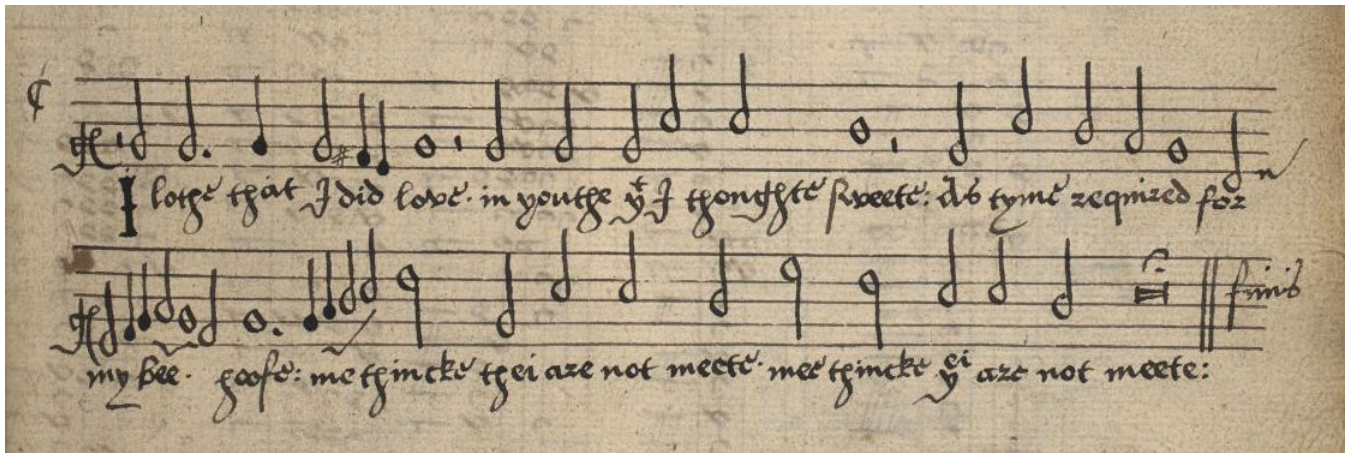 I lothe that I did love. in youthe yt I thoughte sweete: As tyme required for
my bee. hoofe: me thincke thei are not meete. mee thincke yei are not meete:
finis